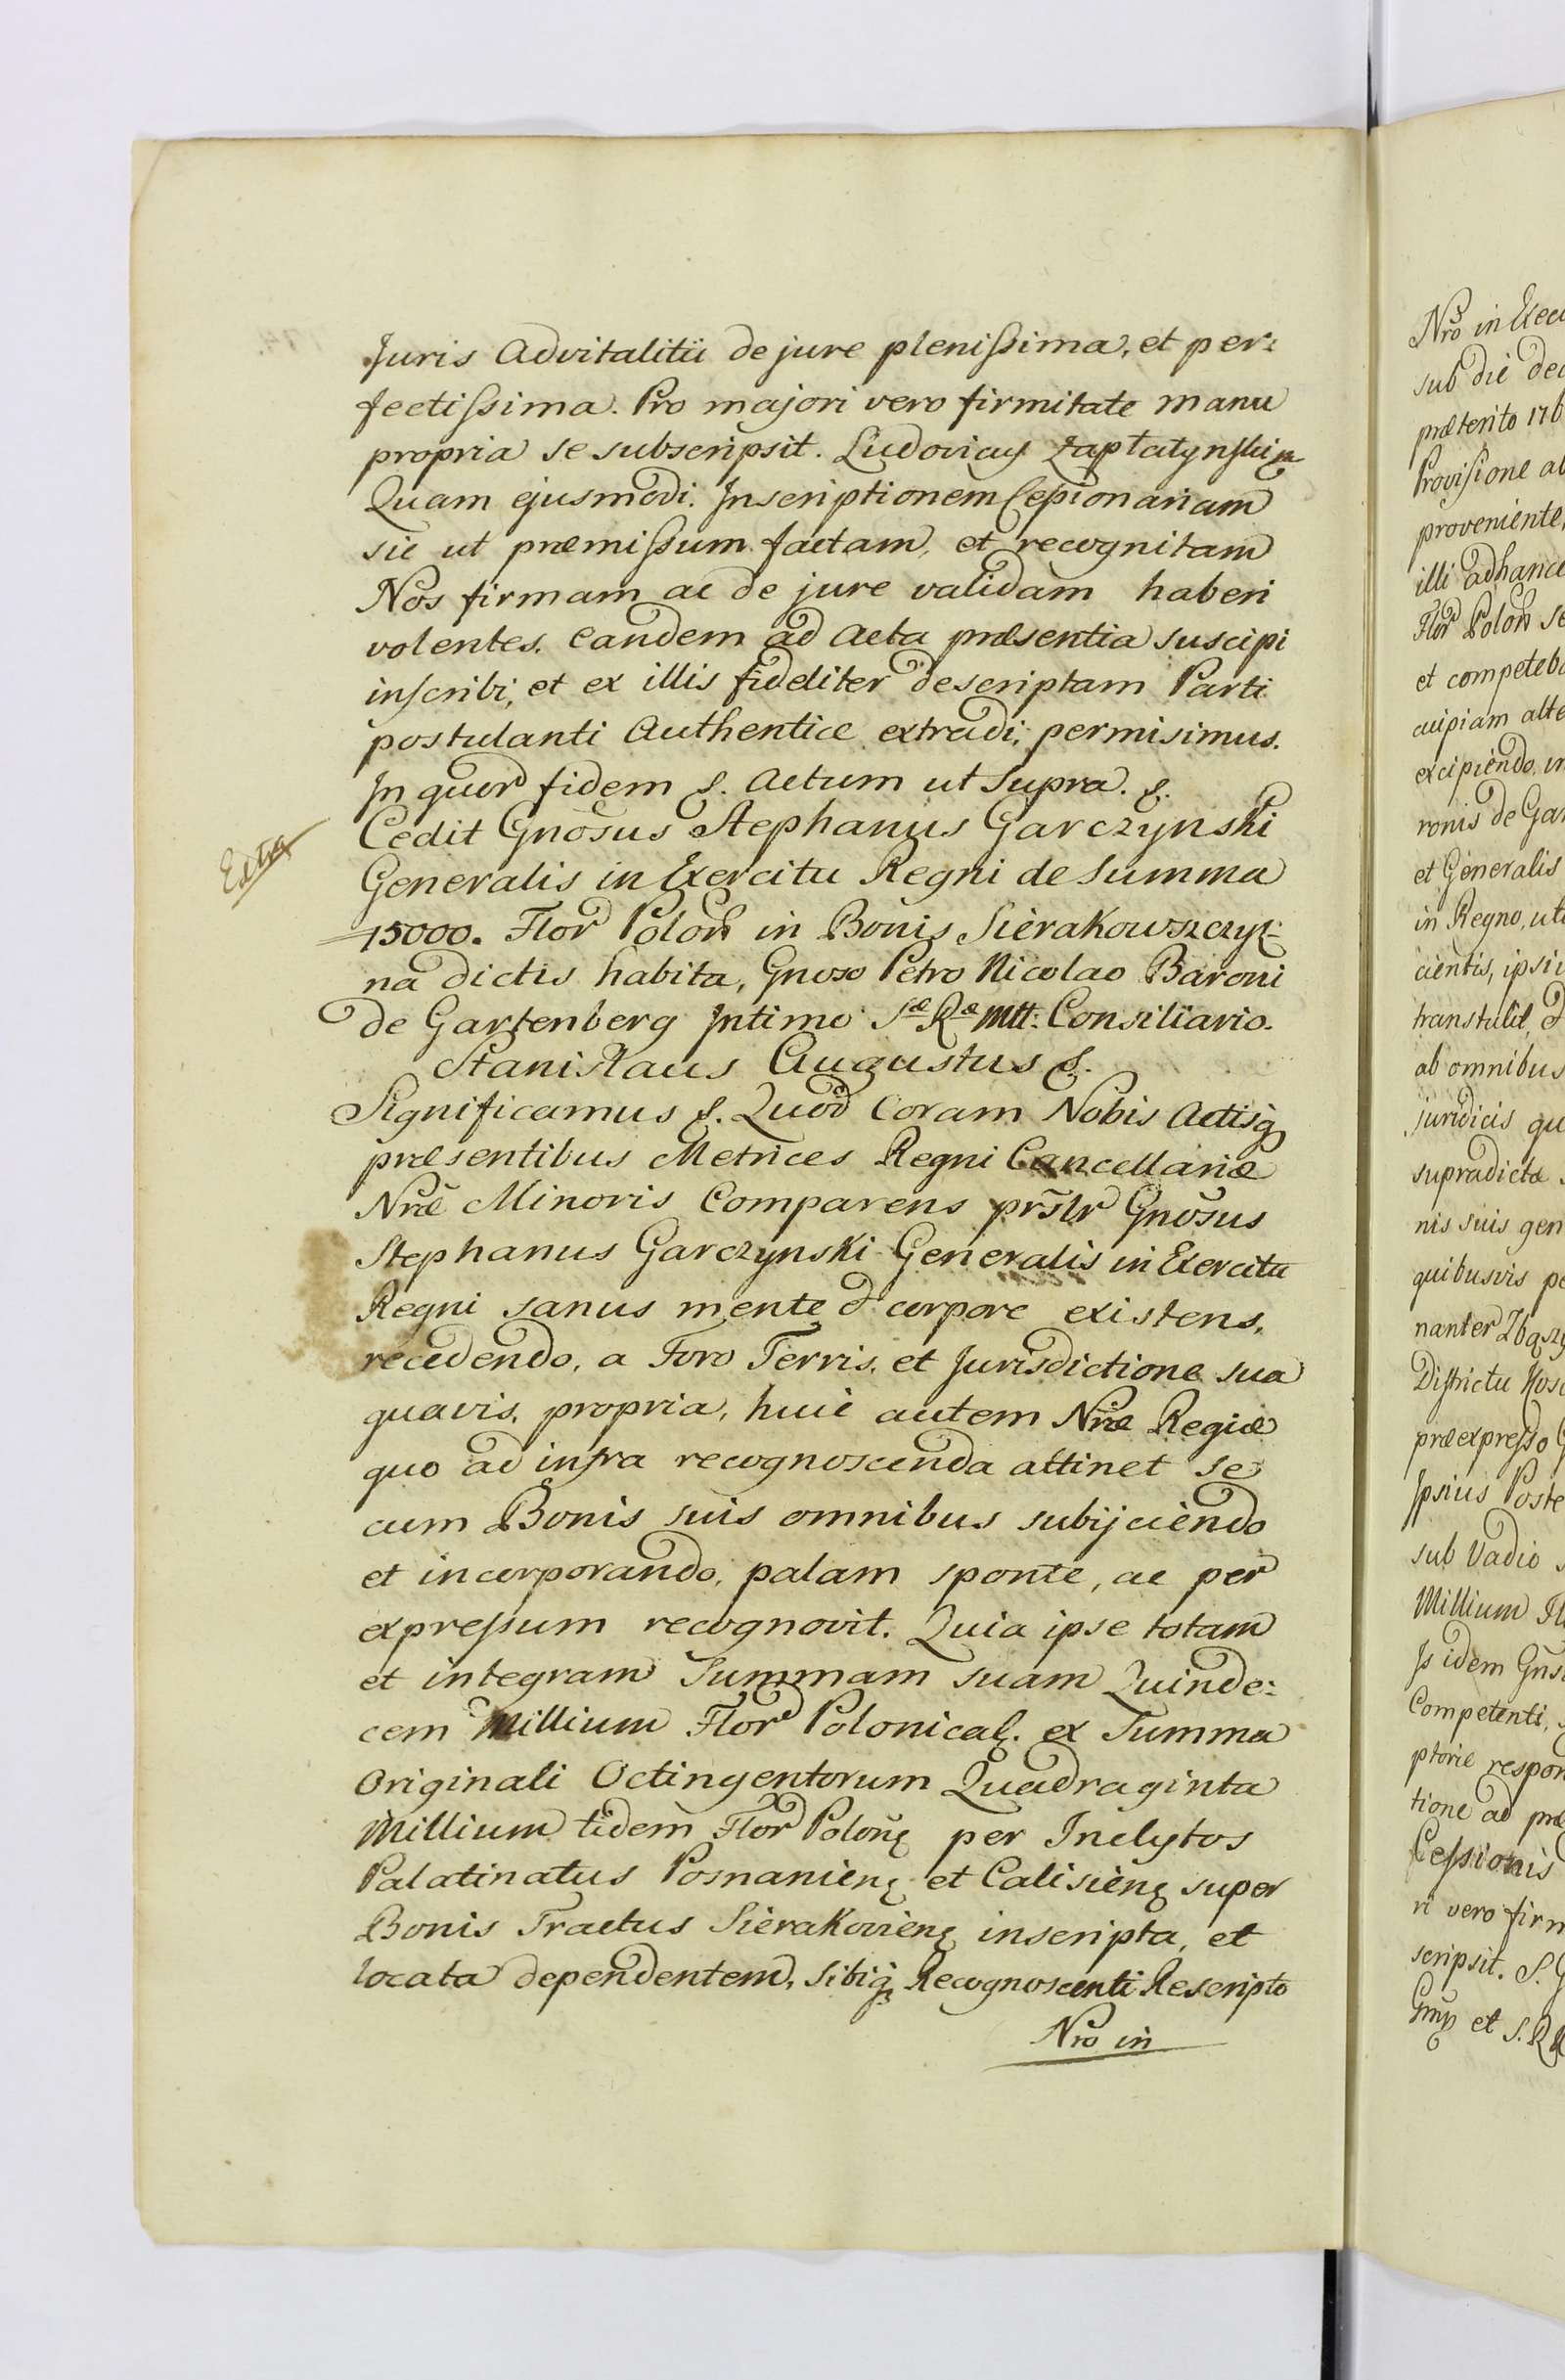 Juris Advitalitii de jure plenissima, et per:
fectissima. Pro majori vero firmitate manu
propria se subscripsit. Ludovicus
Quam ejusmodi. Inscriptionem Cessionariam
sic ut præmissum factam, et recognitam
Nos firmam ac de jure validam haberi
volentes. eandem ad Acta præsentia suscipi
inscribi, et ex illis fideliter descriptam Parti
postulanti Authentice extradi; permisimus.
In quor fidem &. Actum ut supra. &.
Extra
Cedit Gnosus Stephanus Garczynski
Generalis in Exercitu Regni de Summa
15000. Flor Polon in Bonis Sierakowszczyz-
na dictis habita, Gnoso Petro Nicolao Baroni
de Gartenberg Intimo Sæ Ræ Mtt: Consiliario.
Stanislaus Augustus &.
Significamus &. Quod Coram Nobis Actisq
præsentibus Metrices Regni Cancellariæ
Nræ Minoris Comparens prslr Gnosus
Stephanus Garczynski Generalis in Exercitu
Regni sanus mente & corpore existens,
recedendo, a Foro Terris, et Jurisdictione sua
quavis, propria, huic autem Nræ Regiæ
quo ad infra recognoscenda attinet se
cum Bonis suis omnibus subijciendo
et incorporando, palam sponte, ac per
expressum recognovit. Quia ipse totam
et integram Summam suam Quinde:
cem Millium Flor Polonical. ex Summa
Originali Octingentorum Quadraginta
Millium tidem Flor Polonę per Inclytos
Palatinatus Posnanienę et Calisienę super
Bonis Tractus Sierakovienę inscripta, et
locata dependentem, sibiq Recognoscenti Rescripto
Nro in
Nro in Exec
sub die dec
præterito 176
Provisione ab
proveniente,
illi adhance
Flor Polon se
et competeba
cuipiam alte
excipiendo, in
ronis de Gar
et Generalis
in Regno, uti
cientis, ipsi
transtulit,
ab omnibus
juridicis qu
supradicta
nis suis gen
quibusvis pe
nanter Zbąszy
Districtu Kos
præexpresso G
Ipsius Poste
sub Vadio
Millium Fl
Is idem Gns
Competenti,
ptorie respon
tione ad præ
Cessionis
ri vero firm
scripsit. S. G
et S. R